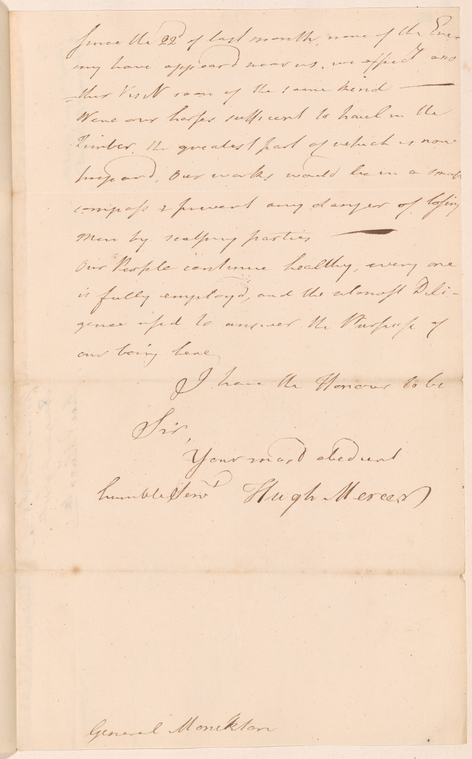 Since the 22d of last month none of the Ene-
my have appeard near us, we expect ano
=ther Visit soon of the same kind —
Were our horses sufficient to haul in the
Timber, the greatest part of which is now
prepard, Our works would be in a small
compass & prevent any danger of losing
Men by scalping parties —
Our People continue healthy, every one
is fully employd, and the utmost Dili-
gence used to answer the Purpose of
our being here
I have the Honour to be
Sir,
Your most obedient
humble Servt Hugh Mercer
General Monckton